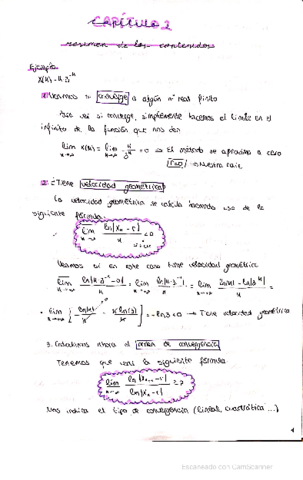 CAPÍTULO 2
resumen de los contenidos
Ejemplo:
X(k) = k·3^-k
1. Veamos si converge a algún nº real finito
Para ver si converge, simplemente hacemos el límite en el
infinito de la función que nos dan
lim x(k) = lim k/3^k = 0 ⇒ El método se aproxima a cero
r=0 → nuestra raíz
2. ¿Tiene velocidad geométrica?
La velocidad geométrica se calcula haciendo uso de la
siguiente fórmula:
lim ln|x_k - r| / k < 0
Veamos si en este caso tiene velocidad geométrica
lim ln|k·3^-k - 0| / k = lim ln|k·3^-k| / k = lim ln|k| - ln|3^k| / k =
= lim [ ln|k| / k - k ln(3) / k ] = -ln3 < 0 → Tiene velocidad geométrica
3. Estudiamos ahora el orden de convergencia
Tenemos que usar la siguiente fórmula
lim ln|x_k+1 - r| / ln|x_k - r| ≥ 2
Nos indica el tipo de convergencia (lineal, cuadrática ...)
Escaneado con CamScanner